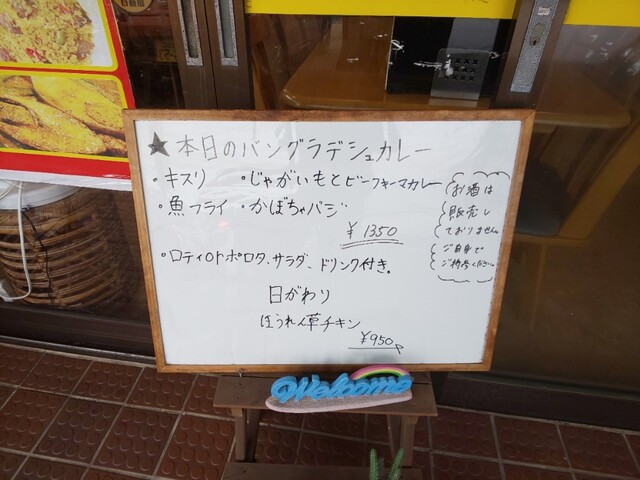 ★本日のバングラデシュカレー
・キスリ ・じゃがいもとビーフキーマカレー
・魚フライ ・かぼちゃバジ
¥1350
・ロティorトポロタ、サラダ、ドリンク付き。
日がわり
ほうれん草チキン
¥950
お酒は
販売し
ておりません。
ご自身で
ご持参ください。
Welcome